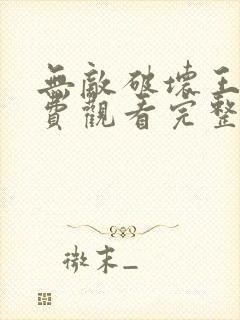 無敵破壞王
費觀看完整
微末_